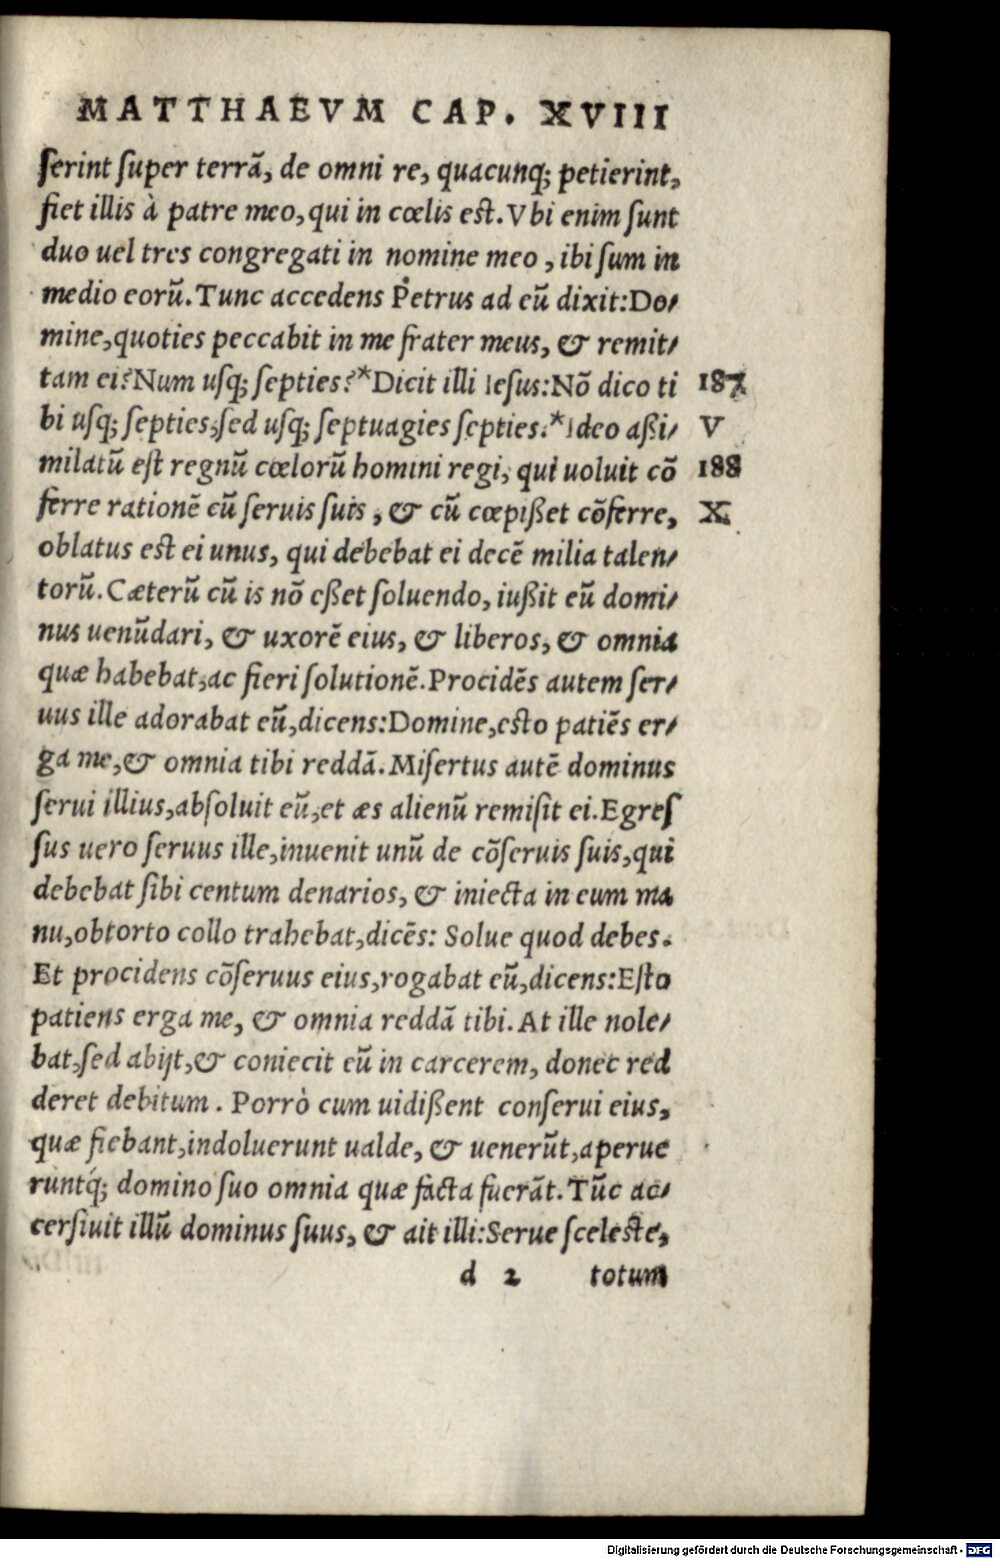 MATTHAEVM CAP. XVIII
ſerint ſuper terrã, de omni re, quacunq; petierint,
fiet illis à patre meo, qui in cœlis eſt. Vbi enim ſunt
duo uel tres congregati in nomine meo, ibi ſum in
medio eorũ. Tunc accedens Petrus ad eũ dixit: Do/
mine, quoties peccabit in me frater meus, & remit/
tam ei? Num uſq; ſepties? *Dicit illi Ieſus: Nõ dico ti 187
bi uſq; ſepties, ſed uſq; ſeptuagies ſepties. *Ideo aßi/ V
milatũ eſt regnũ cœlorũ homini regi, qui uoluit cõ 188
ferre rationẽ cũ ſeruis ſuis, & cũ cœpißet cõferre, X
oblatus eſt ei unus, qui debebat ei decẽ milia talen/
torũ. Cæterũ cũ is nõ eßet ſoluendo, iußit eũ domi/
nus uenũdari, & uxorẽ eius, & liberos, & omnia
quæ habebat, ac fieri ſolutionẽ. Procidẽs autem ſer/
uus ille adorabat eũ, dicens: Domine, eſto patiẽs er/
ga me, & omnia tibi reddã. Miſertus autẽ dominus
ſerui illius, abſoluit eũ, et æs alienũ remiſit ei. Egreſ
ſus uero ſeruus ille, inuenit unũ de cõſeruis ſuis, qui
debebat ſibi centum denarios, & iniecta in eum ma
nu, obtorto collo trahebat, dicẽs: Solue quod debes.
Et procidens cõſeruus eius, rogabat eũ, dicens: Eſto
patiens erga me, & omnia reddã tibi. At ille nole/
bat, ſed abijt, & coniecit eũ in carcerem, donec red
deret debitum. Porrò cum uidißent conſerui eius,
quæ fiebant, indoluerunt ualde, & uenerũt, aperue
runtq́; domino ſuo omnia quæ facta fuerãt. Tũc ac/
cerſiuit illũ dominus ſuus, & ait illi: Serue ſceleſte,
d 2 totum
Digitalisierung gefördert durch die Deutsche Forschungsgemeinschaft - DFG